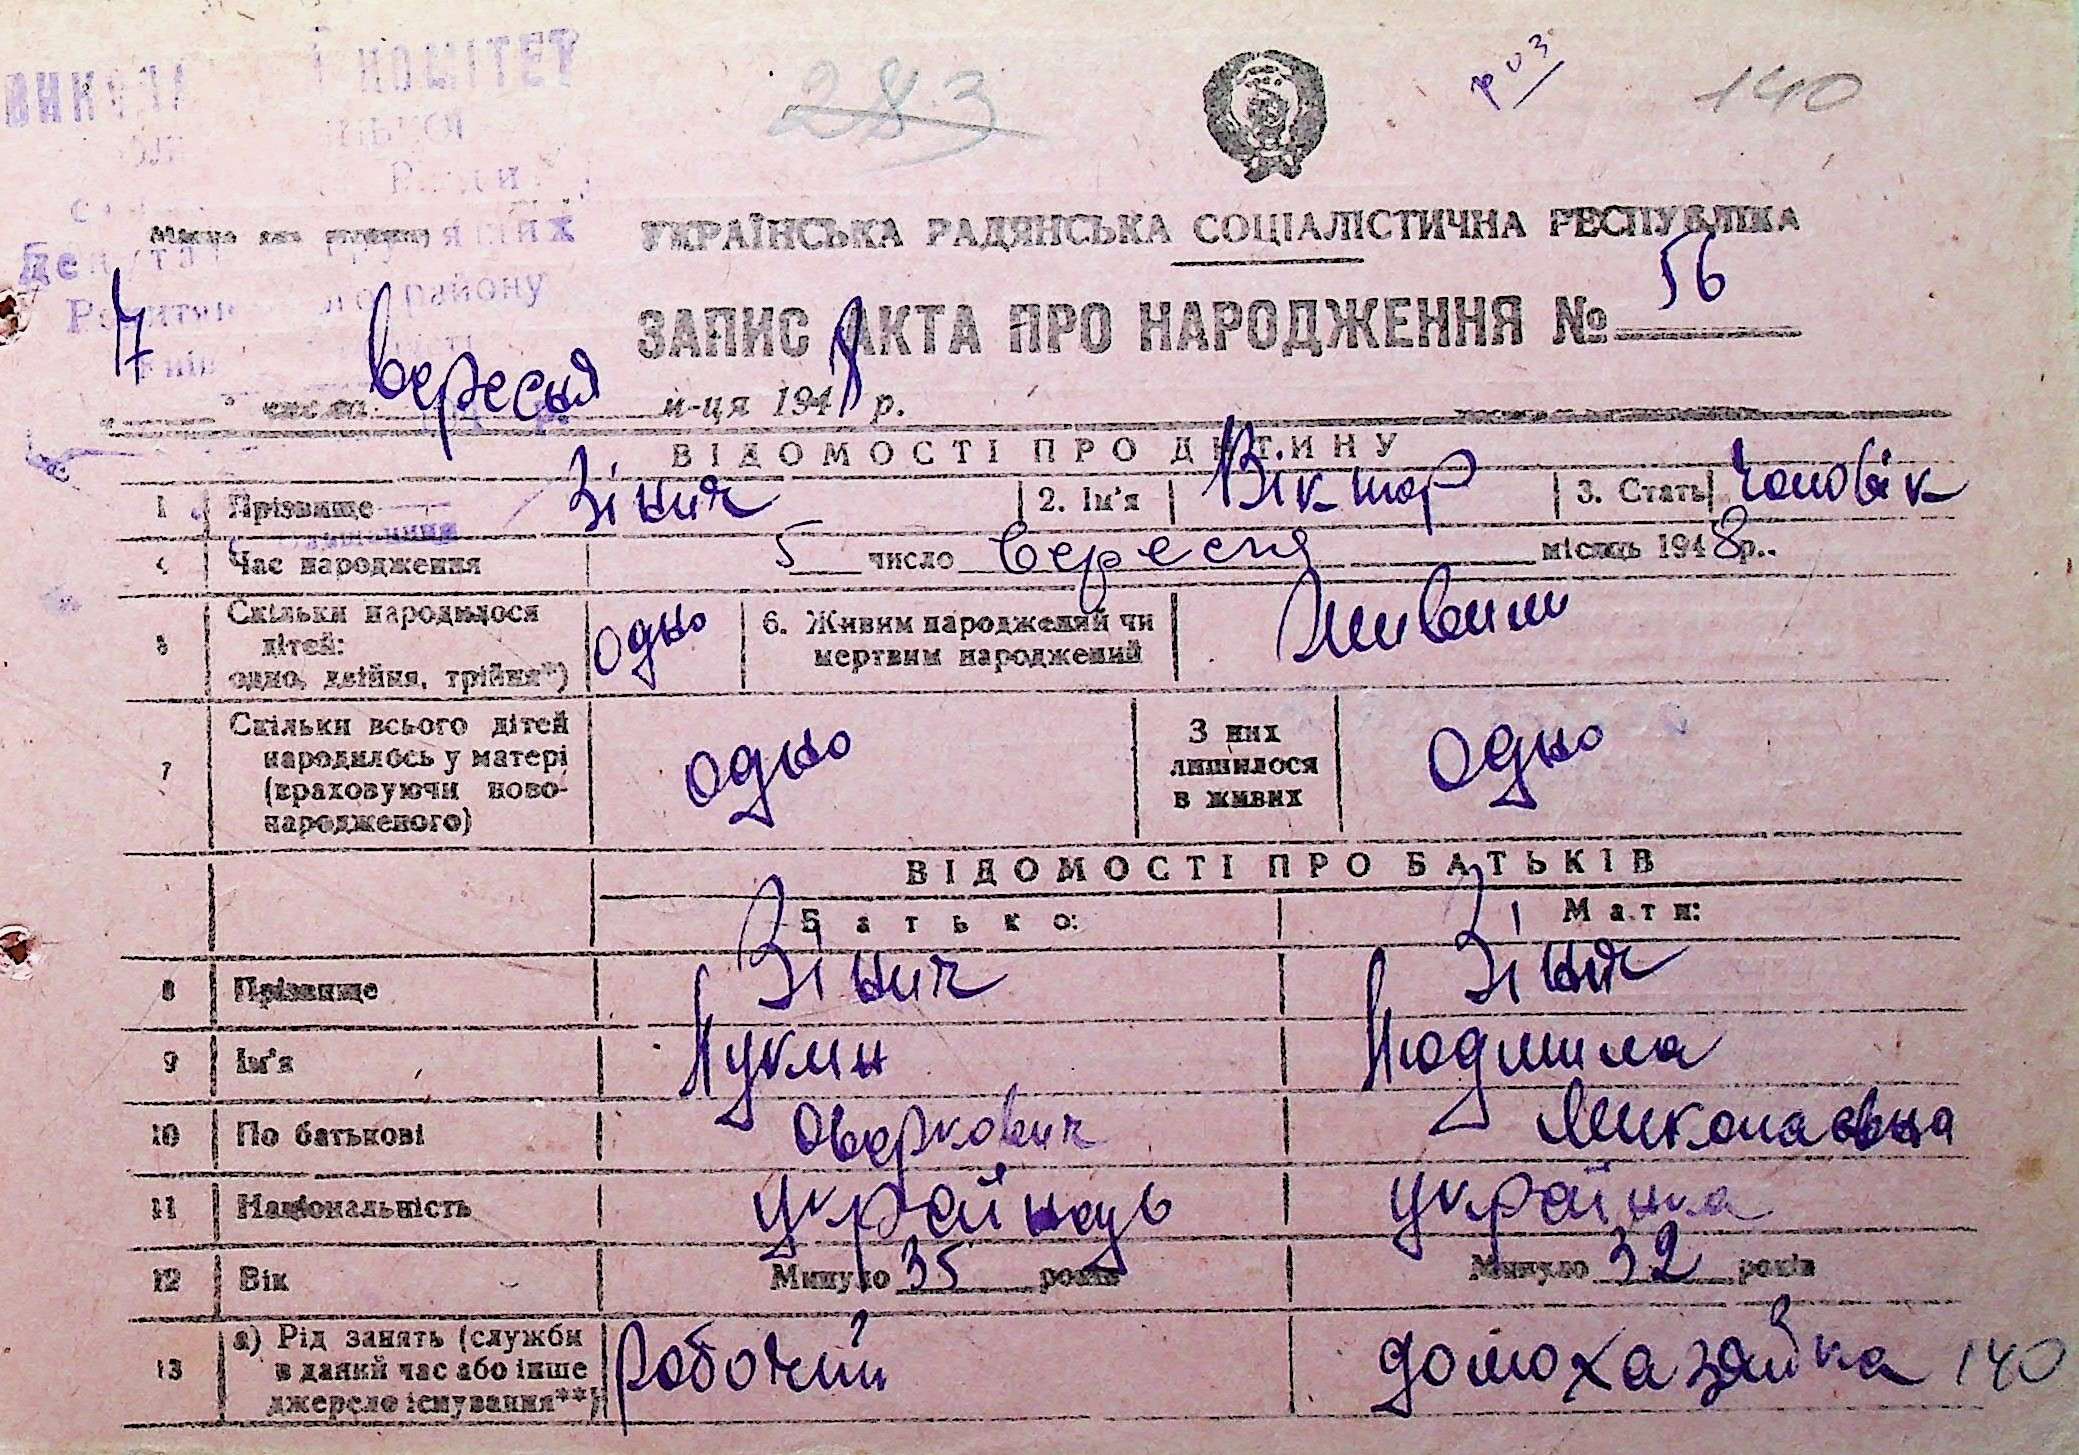 КОМІТЕТ
283
роз
140
Місце для
району
УКРАЇНСЬКА РАДЯНСЬКА СОЦІАЛІСТИЧНА РЕСПУБЛІКА
ЗАПИС АКТА ПРО НАРОДЖЕННЯ № 56
7 " числа вересня м-ця 1948 р.
ВІДОМОСТІ ПРО ДИТИНУ
1 Прізвище Зінич 2. Ім'я Віктор 3. Стать Чоловік
4 Час народження 5 число вересня місяць 1948 р.
5 Скільки народилося дітей: одно, двійня, трійня*) одно 6. Живим народжений чи мертвим народжений Живим
7 Скільки всього дітей народилось у матері (враховуючи ново-народженого) одно З них лишилося в живих одно
ВІДОМОСТІ ПРО БАТЬКІВ
Батько: Мати:
8 Прізвище Зінич Зінич
9 Ім'я Лукян Людмила
10 По батькові Оверкович Миколаєвна
11 Національність українець українка
12 Вік Минуло 35 років Минуло 32 років
13 а) Рід занять (служби в даний час або інше джерело існування**) робочий домохазяйка 140